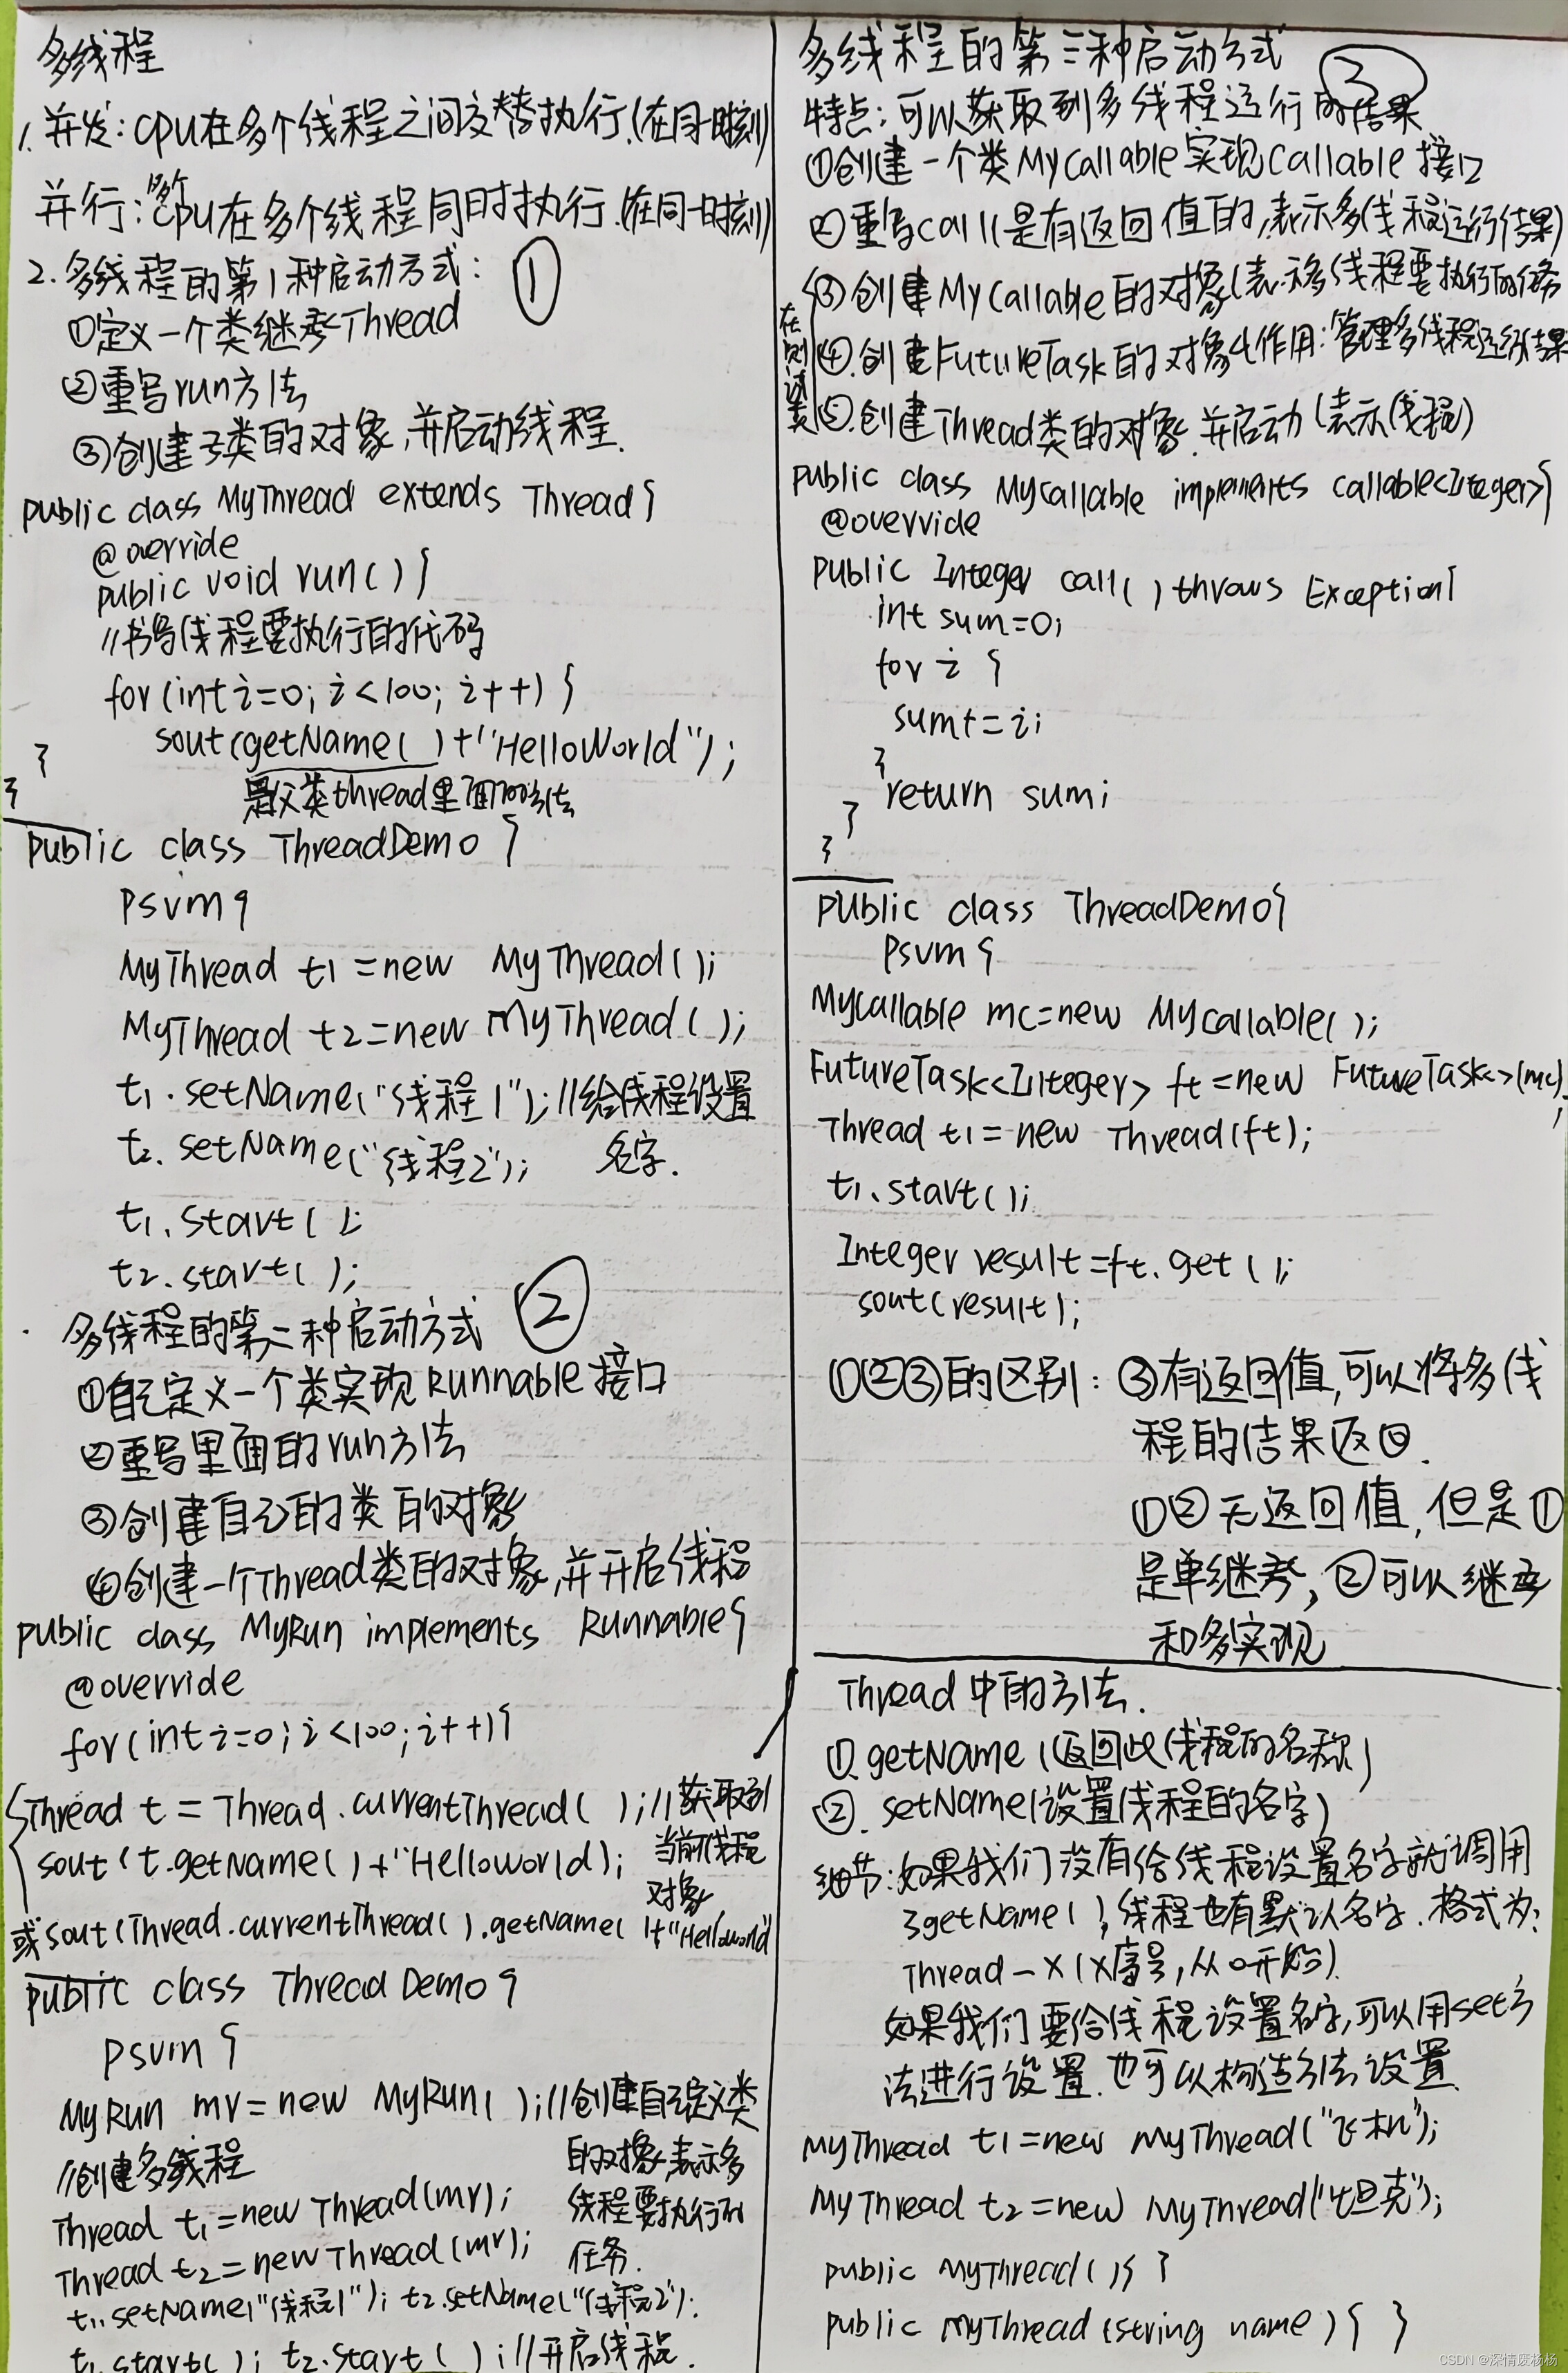 多线程
1. 并发: CPU在多个线程之间交替执行.(在同一时刻)
并行: 多个CPU在多个线程同时执行.(在同一时刻)
2. 多线程的第1种启动方式: ①
①定义一个类继承Thread
②重写run方法
③创建子类的对象,并启动线程.
public class MyThread extends Thread{
@override
public void run(){
//书写线程要执行的代码
for(int i=0; i<100; i++) {
sout(getName()+"HelloWorld");
}
是父类thread里面的方法
}
public class ThreadDemo {
psvm {
MyThread t1 =new MyThread();
MyThread t2=new MyThread();
t1.setName("线程1"); //给线程设置
t2. setName("线程2"); 名字.
t1.start();
t2.start();
多线程的第二种启动方式 ②
①自己定义一个类实现Runnable接口
②重写里面的run方法
③创建自己的类的对象
④创建一个Thread类的对象,并开启线程
public class MyRun implements Runnable{
@override
for(int i=0; i<100; i++){
Thread t = Thread.currentThread(); //获取到
sout(t.getName()+"HelloWorld); 当前线程
对象
或sout(Thread.currentThread().getName()+"HelloWorld"
public class ThreadDemo {
psvm {
MyRun mr=new MyRun(); //创建自己定义类
//创建多线程 的对象,表示多
Thread t1=new Thread(mr); 线程要执行的
Thread t2=new Thread(mr); 任务.
t1.setName("线程1"); t2.setName("线程2");
t1.start(); t2.start(); //开启线程.
多线程的第三种启动方式 ③
特点: 可以获取到多线程运行的结果
①创建一个类MyCallable实现Callable接口
②重写call(是有返回值的,表示多线程运行结果)
在测试类
③创建MyCallable的对象(表示多线程要执行的任务
④.创建FutureTask的对象(作用:管理多线程运行结果
⑤.创建Thread类的对象.并启动(表示线程)
public class MyCallable implements Callable<Integer>{
@override
public Integer call() throws Exception{
int sum=0;
for i {
sum+=i;
}
return sum;
}
}
public class ThreadDemo{
psvm {
MyCallable mc=new MyCallable();
FutureTask<Integer> ft =new FutureTask<>(mc);
Thread t1=new Thread(ft);
t1.start();
Integer result=ft.get();
sout(result);
①②③的区别: ③有返回值,可以将多线
程的结果返回.
①②无返回值,但是①
是单继承,②可以继承
和多实现
Thread中的方法.
①.getName(返回此线程的名称)
②. setName(设置线程的名字)
细节:如果我们没有给线程设置名字就调用
了getName(),线程也有默认名字.格式为:
Thread-X(X序号,从0开始).
如果我们要给线程设置名字,可以用set方
法进行设置.也可以构造方法设置
MyThread t1=new MyThread("飞机");
MyThread t2=new MyThread("坦克");
public MyThread(){ }
public MyThread(string name){ }
CSDN @深情废杨杨